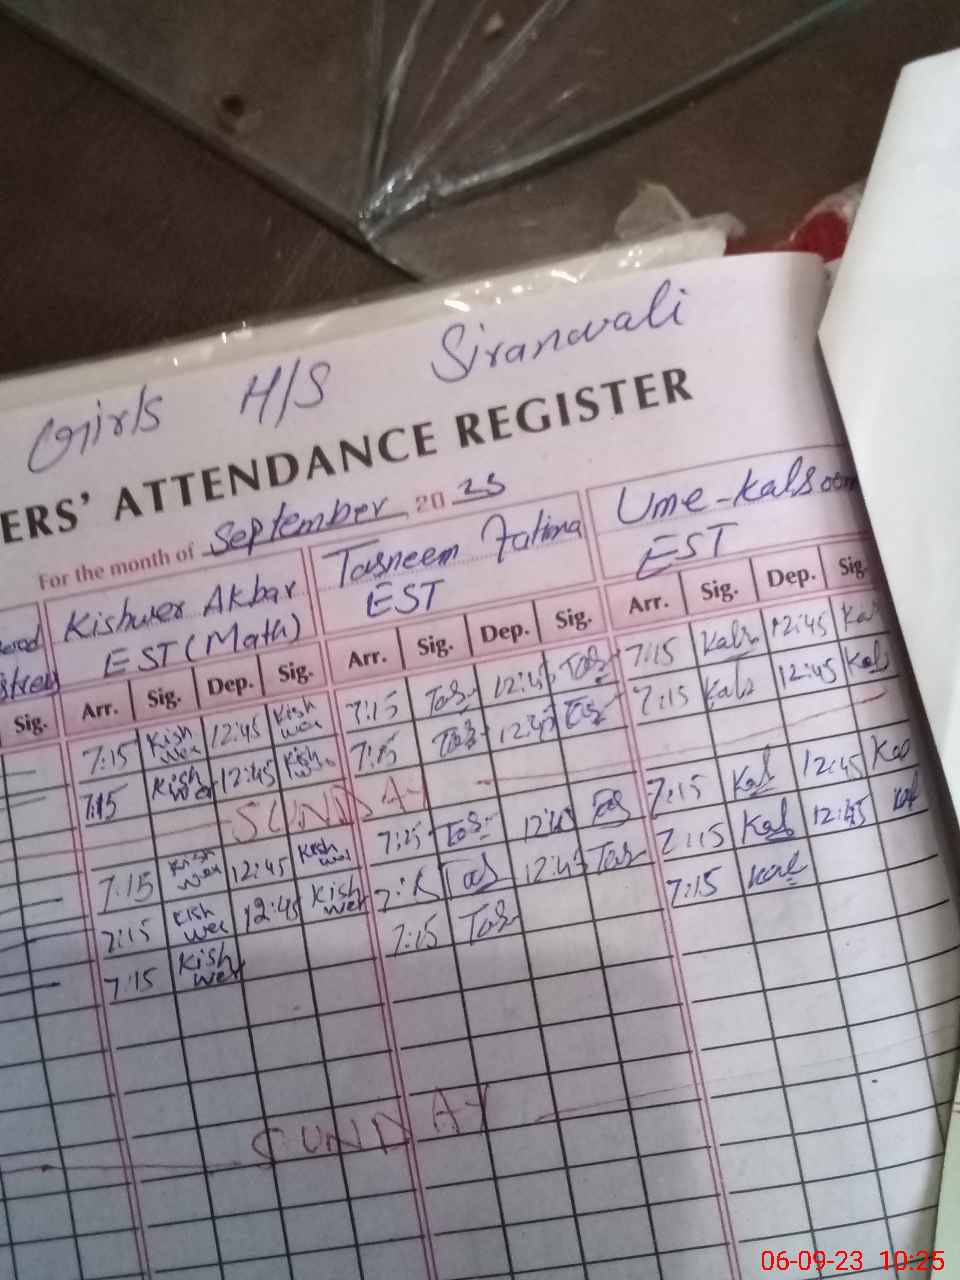 Girls H/S Siranwali
ERS' ATTENDANCE REGISTER
For the month of September 20 23
Kishwer Akbar Tasneem Fatima Ume-Kalsoom
EST (Math) EST EST
Sig. Arr. Sig. Dep. Sig. Arr. Sig. Dep. Sig. Arr. Sig. Dep. Sig.
7:15 Kishwer 12:45 Kishwer 7:15 Tas 12:45 Tas 7:15 Kals 12:45 Kal
7:15 Kishwer 12:45 Kishwer 7:15 Tas 12:45 Tas 7:15 Kals 12:45 Kal
SUNDAY
7:15 Kishwer 12:45 Kishwer 7:15 Tas 12:45 Tas 7:15 Kal 12:45 Kal
7:15 Kishwer 12:45 Kishwer 7:15 Tas 12:45 Tas 7:15 Kal 12:45 Kal
7:15 Kishwer 7:15 Tas 7:15 Kal
SUNDAY
06-09-23 10:25